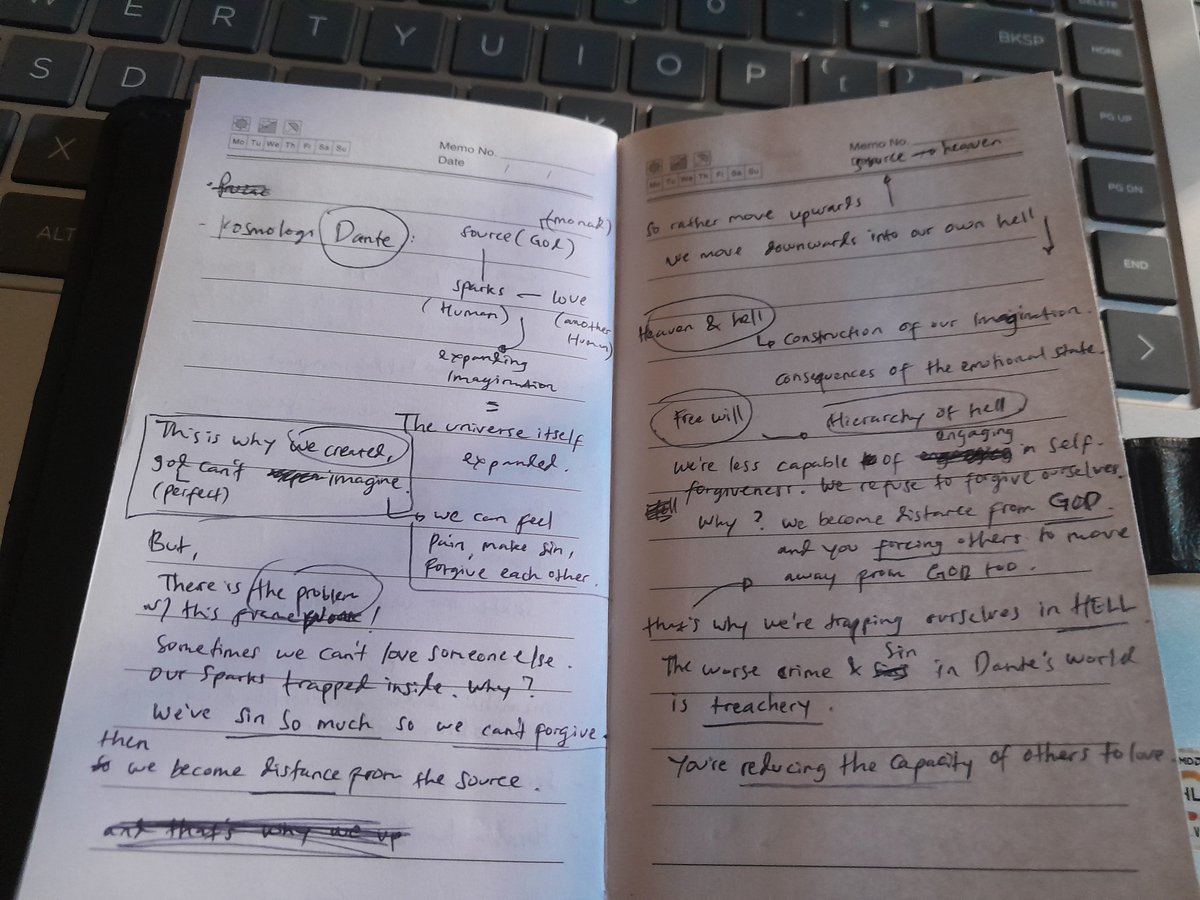 W E R T Y U I O P
BKSP
HOME
S D
X
ALT
PG UP
PG DN
END
DELETE
Mo Tu We Th Fr Sa Su
Memo No.
Date / /
- Kosmologi Dante :
source (God) (monad)
sparks — love
(Human) (another Human)
expanding
imagination
=
The universe itself
expanded.
This is why we created,
god can't imagine.
(perfect)
we can feel
pain, make sin,
forgive each other.
But,
There is the problem
w/ this frame !
Sometimes we can't love someone else.
our sparks trapped inside. Why?
We've sin so much so we can't forgive.
then
we become distance from the source.
and that's why we up
Mo Tu We Th Fr Sa Su
Memo No.
source → heaven
so rather move upwards ↑
we move downwards into our own hell ↓
Heaven & hell
↳ construction of our imagination.
consequences of the emotional state.
Free will → Hierarchy of hell
engaging
we're less capable of in self.
forgiveness. We refuse to forgive ourselves.
Why? we become distance from GOD.
and you forcing others to move
away from GOD too.
that's why we're trapping ourselves in HELL
Sin
The worse crime & in Dante's world
is treachery.
You're reducing the capacity of others to love.